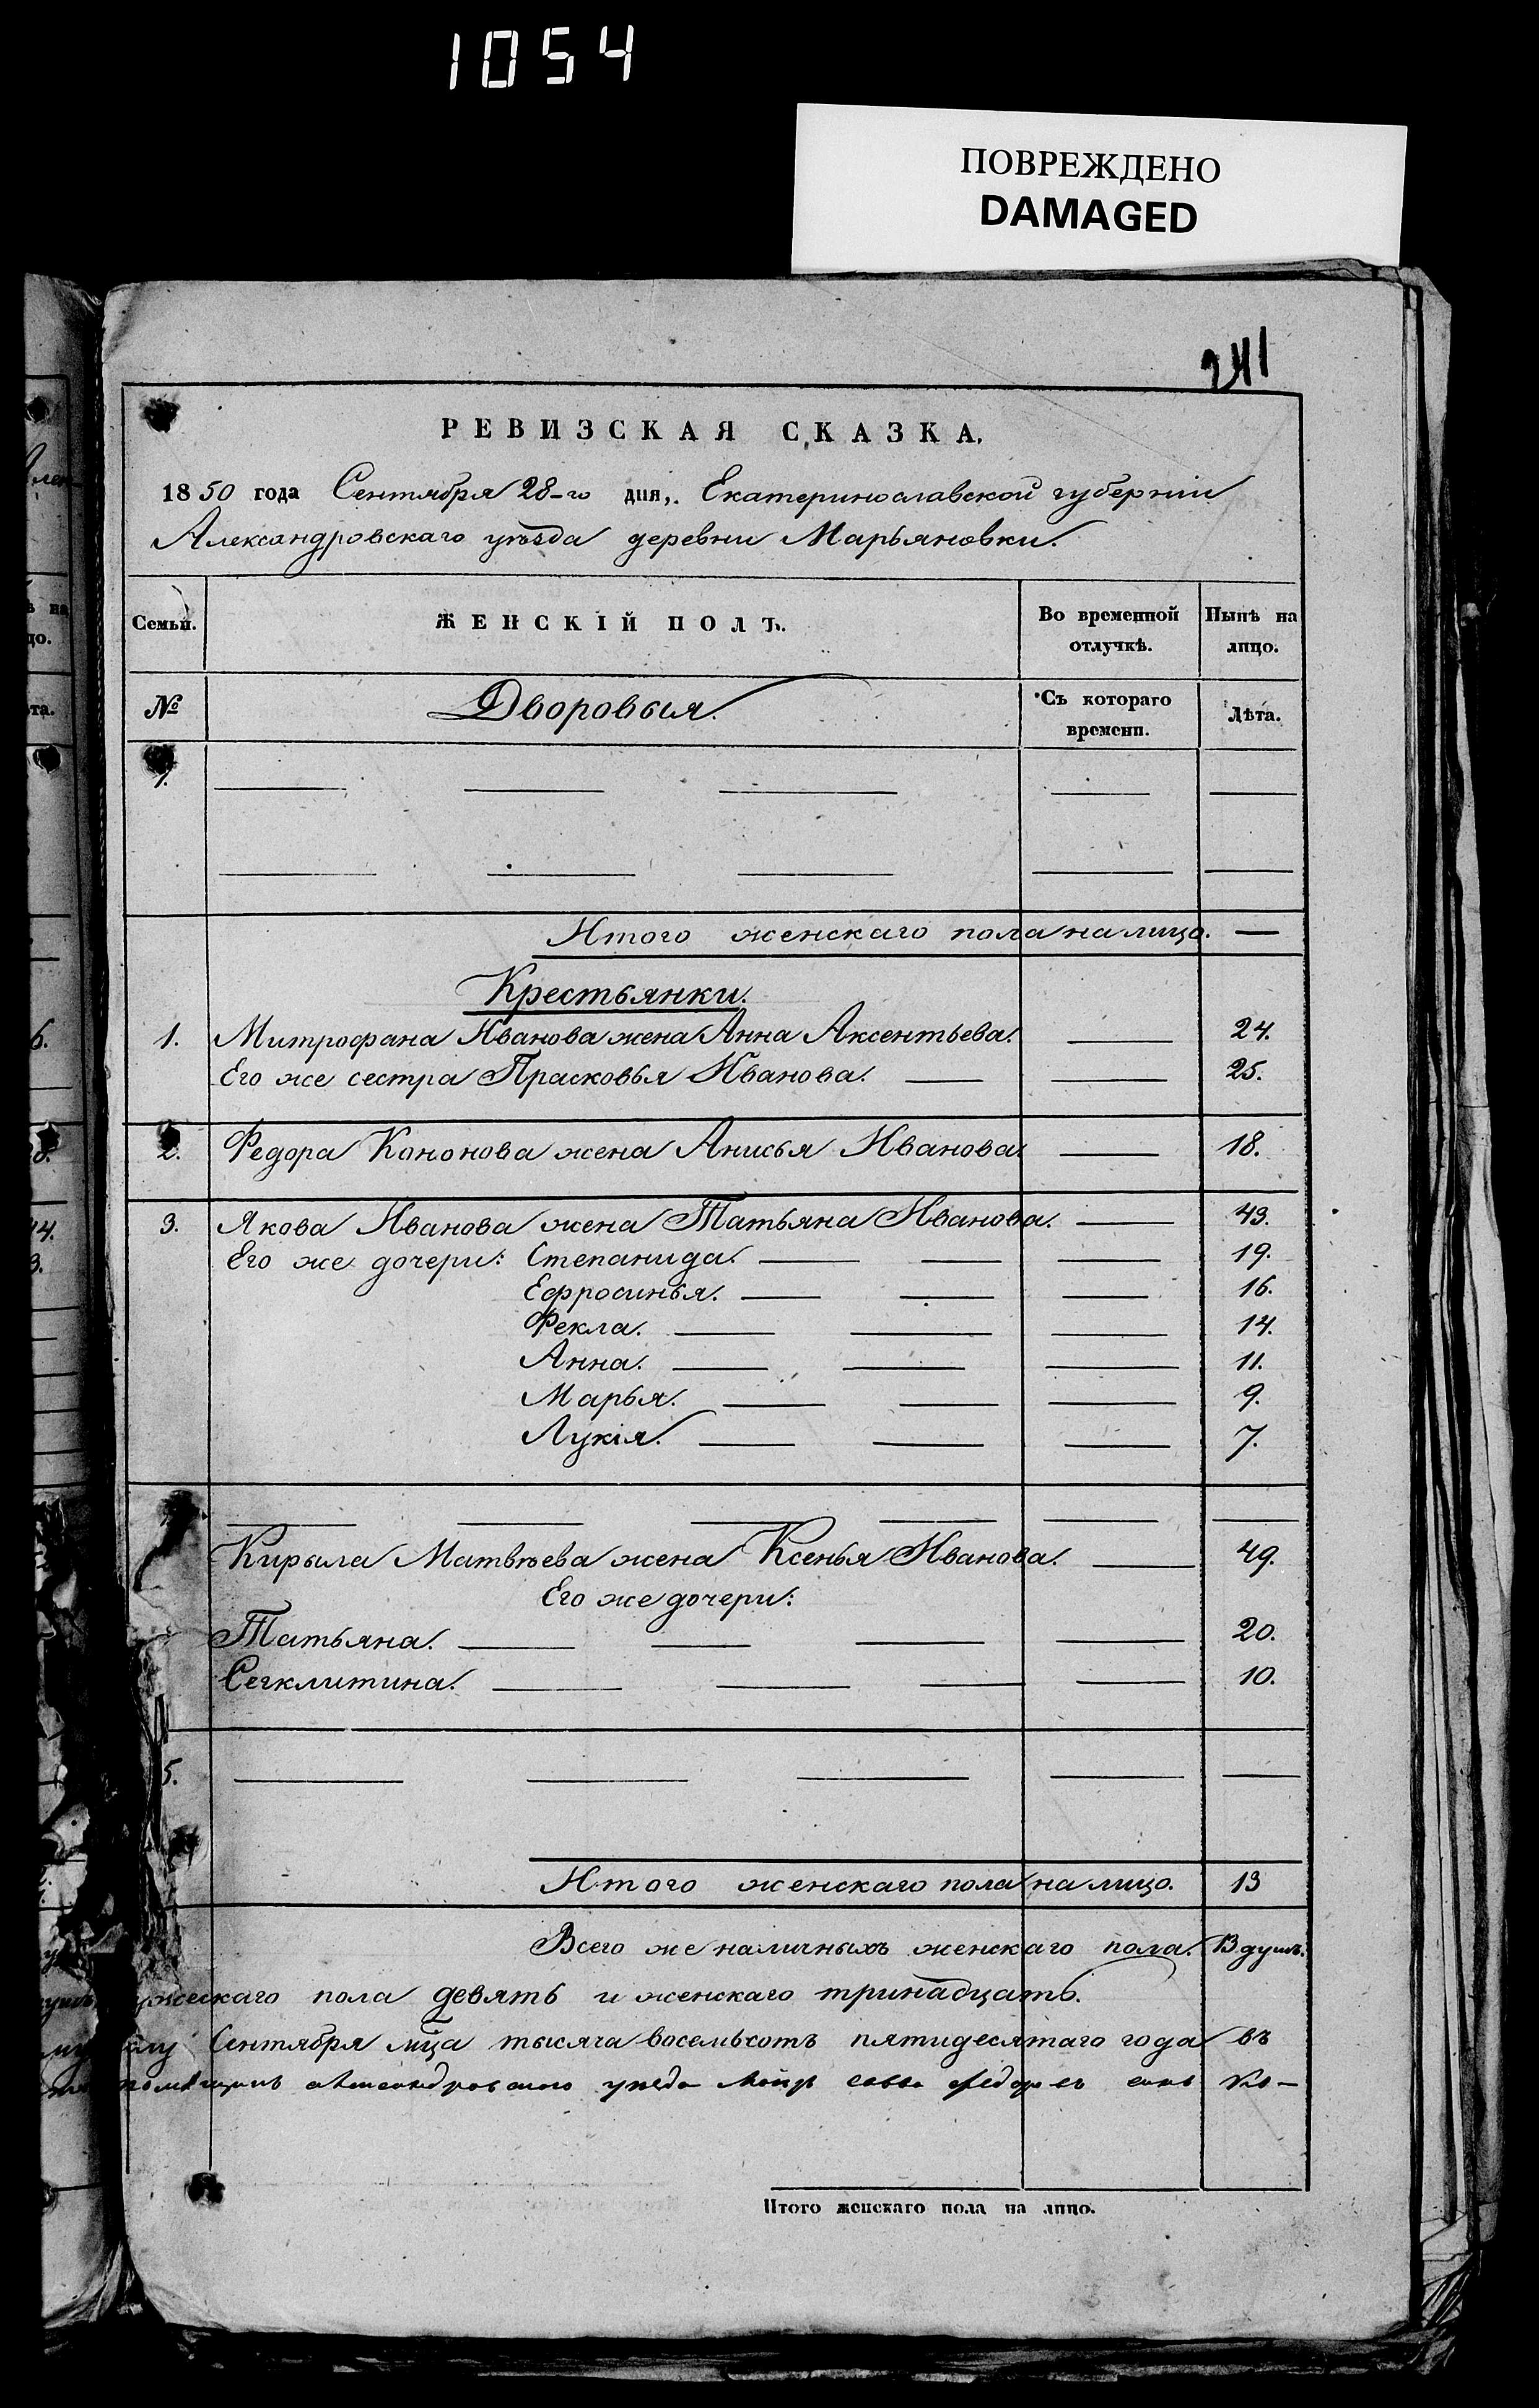 1054
ПОВРЕЖДЕНО
DAMAGED
241
РЕВИЗСКАЯ СКАЗКА.
1850 года Сентября 28-го дня, Екатеринославской губерніи
Александровскаго уѣзда деревни Марьяновки.
Семьи. ЖЕНСКІЙ ПОЛЪ. Во временной отлучкѣ. Нынѣ на лицо.
№ Дворовыя. Съ котораго времени. Лѣта.
1.
Итого женскаго пола на лицо. —
Крестьянки.
1. Митрофана Иванова жена Анна Аксентьева. — 24.
Его же сестра Прасковья Иванова. — — 25.
2. Федора Кононова жена Анисья Иванова. — 18.
3. Якова Иванова жена Татьяна Иванова. — 43.
Его же дочери: Степанида. — — — 19.
Ефросинья. — — — 16.
Фекла. — — — 14.
Анна. — — — 11.
Марья. — — — 9.
Лукія. — — — 7.
Кирыла Матвѣева жена Ксенья Иванова. — 49.
Его же дочери:
Татьяна. — — — — 20.
Сегклитина. — — — — 10.
5. — — — — —
Итого женскаго пола на лицо. 13
Всего же наличныхъ женскаго пола. 13 душъ.
мужескаго пола девять и женскаго тринадцать.
Сентября мца тысяча восемьсотъ пятидесятаго года въ
уѣзда
Итого женскаго пола на лицо.